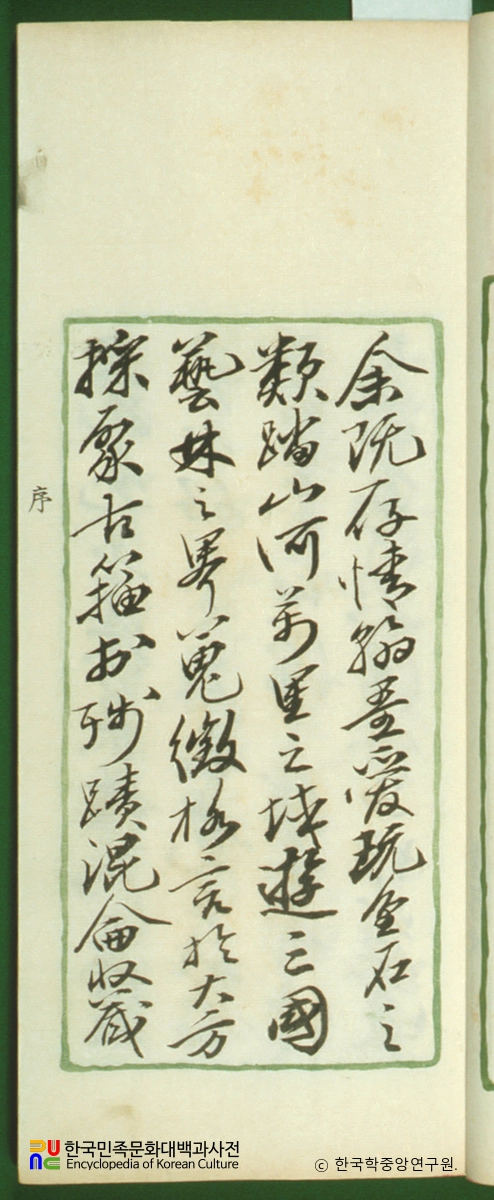 余既存情翰墨愛玩金石之
類踏山河萬里之域遊三國
藝林之界蒐徵格言於大方
採聚古籀於殘蹟混侖收藏
序
한국민족문화대백과사전
Encyclopedia of Korean Culture
ⓒ 한국학중앙연구원.